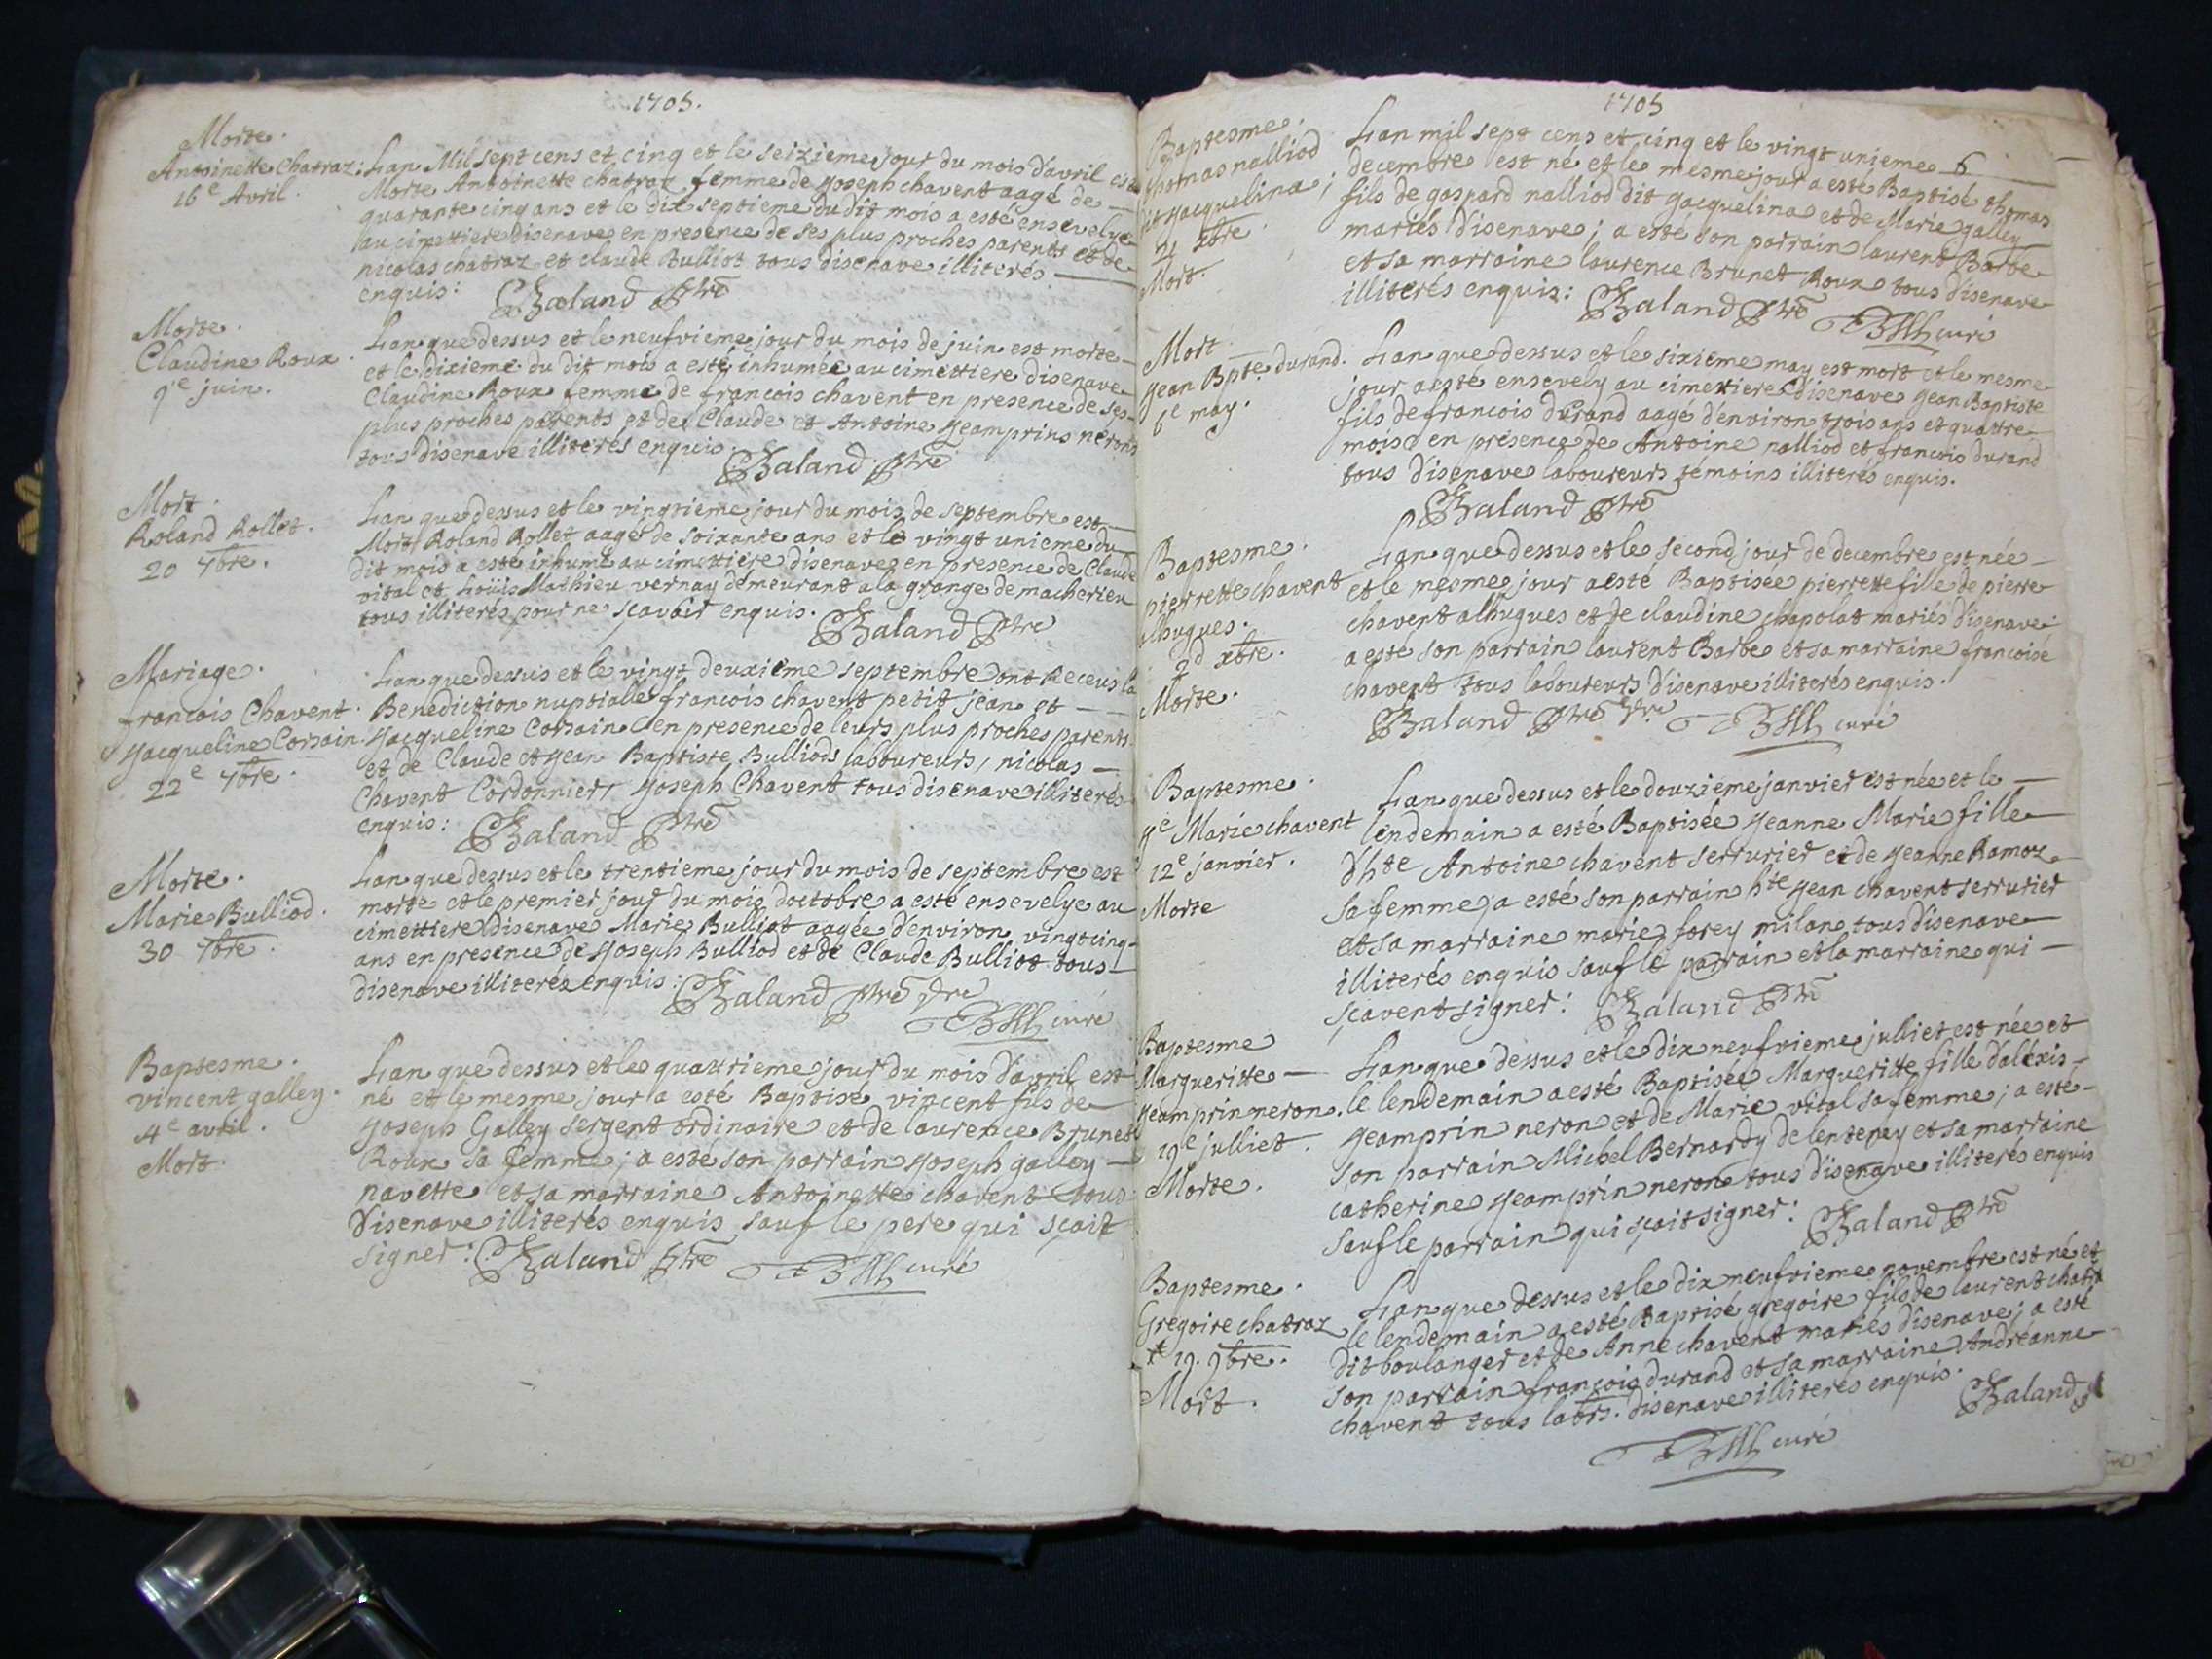 1705.
Morte.
Antoinette Chatraz:
16e Avril.
Lan Mil sept cens et cinq et le seizieme jour du mois davril est
Morte Antoinette chatraz femme de Joseph chavent aagé de
quarante cinq ans et le dix septieme du dit mois a esté ensevelye
au cimettiere disenave en presence de ses plus proches parents et de
nicolas chatraz et claude Bulliot tous disenave illiterés
enquis: Baland Ptre
Morte.
Claudine Roux.
9e juin.
Lan que dessus et le neufvieme jour du mois de juin est morte
et le dixieme du dit mois a esté inhumée au cimettiere disenave
Claudine Roux femme de francois chavent en presence de ses
plus proches parents et de Claude et Antoine Jeamprins nérons
tous disenave illiterés enquis. Baland Ptre
Mort.
Roland Rollet.
20 7bre.
Lan que dessus et le vingtieme jour du mois de septembre est
Mort Roland Rollet aagé de soixante ans et le vingt unieme du
dit mois a esté inhumé au cimettiere disenave en presence de Claude
vital et Loüis Mathieu vernay demeurant a la grange de macherieu
tous illiterés pour ne sçavoir enquis. Baland Ptre
Mariage.
francois Chavent.
Jacqueline Corsain.
22e 7bre.
Lan que dessus et le vingt deuxieme septembre ont Receus la
Benediction nuptialle francois chavent petit jean et
Jacqueline Corsain en presence de leurs plus proches parents
et de Claude et Jean Baptiste Bulliods laboureurs, nicolas
Chavent Cordonnier, Joseph Chavent tous disenave illiterés
enquis: Baland Ptre
Morte.
Marie Bulliod.
30 7bre.
Lan que dessus et le trentieme jour du mois de septembre est
morte et le premier jour du mois doctobre a esté ensevelye au
cimettiere disenave Marie Bulliot aagée d'environ vingt cinq
ans en presence de Joseph Bulliod et de Claude Bulliot tous
disenave illiterés enquis: Baland Ptre
curé
Baptesme.
vincent galley.
4e avril.
Mort.
Lan que dessus et le quattrieme jour du mois d'avril est
né et le mesme jour a esté Baptisé vincent fils de
Joseph Galley sergent ordinaire et de laurence Brunet
Roux sa femme; a esté son parrain Joseph galley
navette et sa marraine Antoinette chavent tous
d'isenave illiterés enquis sauf le pere qui sçait
signer: Baland Ptre curé
1705
6
Baptesme.
thomas nalliod
dit jacquelina;
21 xbre.
Mort.
Lan mil sept cens et cinq et le vingt unieme
decembre est né et le mesme jour a esté Baptisé thomas
fils de gaspard nalliod dit jacquelina et de Marie galley
mariés d'isenave; a esté son parrain laurent Barbe
et sa marraine laurence Brunet Roux tous d'isenave
illiterés enquis: Baland Ptre
curé
Mort.
Jean Bpte. durand.
6e may.
Lan que dessus et le sixieme may est mort et le mesme
jour a esté ensevely au cimettiere d'isenave Jean Baptiste
fils de francois durand aagé d'environ trois ans et quattre
mois en présence de Antoine nalliod et francois durand
tous d'isenave laboureurs témoins illiterés enquis.
Baland Ptre
Baptesme.
pierrette chavent
alhugues.
2d xbre.
Morte.
Lan que dessus et le second jour de decembre est née
et le mesme jour a esté Baptisée pierrette fille de pierre
chavent alhugues et de claudine chapolat mariés d'isenave
a esté son parrain laurent Barbe et sa marraine francoise
chavent tous laboureurs d'isenave illiterés enquis.
Baland Ptre curé
Baptesme.
Je Marie chavent
12e janvier.
Morte
Lan que dessus et le douzieme janvier est née et le
lendemain a esté Baptisée Jeanne Marie fille
d'hte Antoine chavent serrurier et de Jeanne Ramoz
sa femme; a esté son parrain hte Jean chavent serrurier
et sa marraine marie forey milan tous d'isenave
illiterés enquis sauf le parrain et la marraine qui
sçavent signer: Baland Ptre
Baptesme
Margueritte
Jeamprin neron.
19e julliet.
Morte.
Lan que dessus et le dix neufvieme julliet est née et
le lendemain a esté Baptisée Margueritte fille d'aléxis
Jeamprin neron et de Marie vital sa femme; a esté
son parrain Michel Bernardy de lentenay et sa marraine
catherine Jeamprin neron tous disenave illiterés enquis
sauf le parrain qui sçait signer: Baland Ptre
Baptesme.
Gregoire chatraz
19. 9bre.
Mort.
Lan que dessus et le dix neufvieme novembre est né et
le lendemain a esté Baptisé gregoire fils de laurent chatraz
dit boulanger et de Anne chavent mariés d'isenave; a esté
son parrain françois durand et sa marraine Andréanne
chavent tous labrs. disenave illiterés enquis. Baland
curé